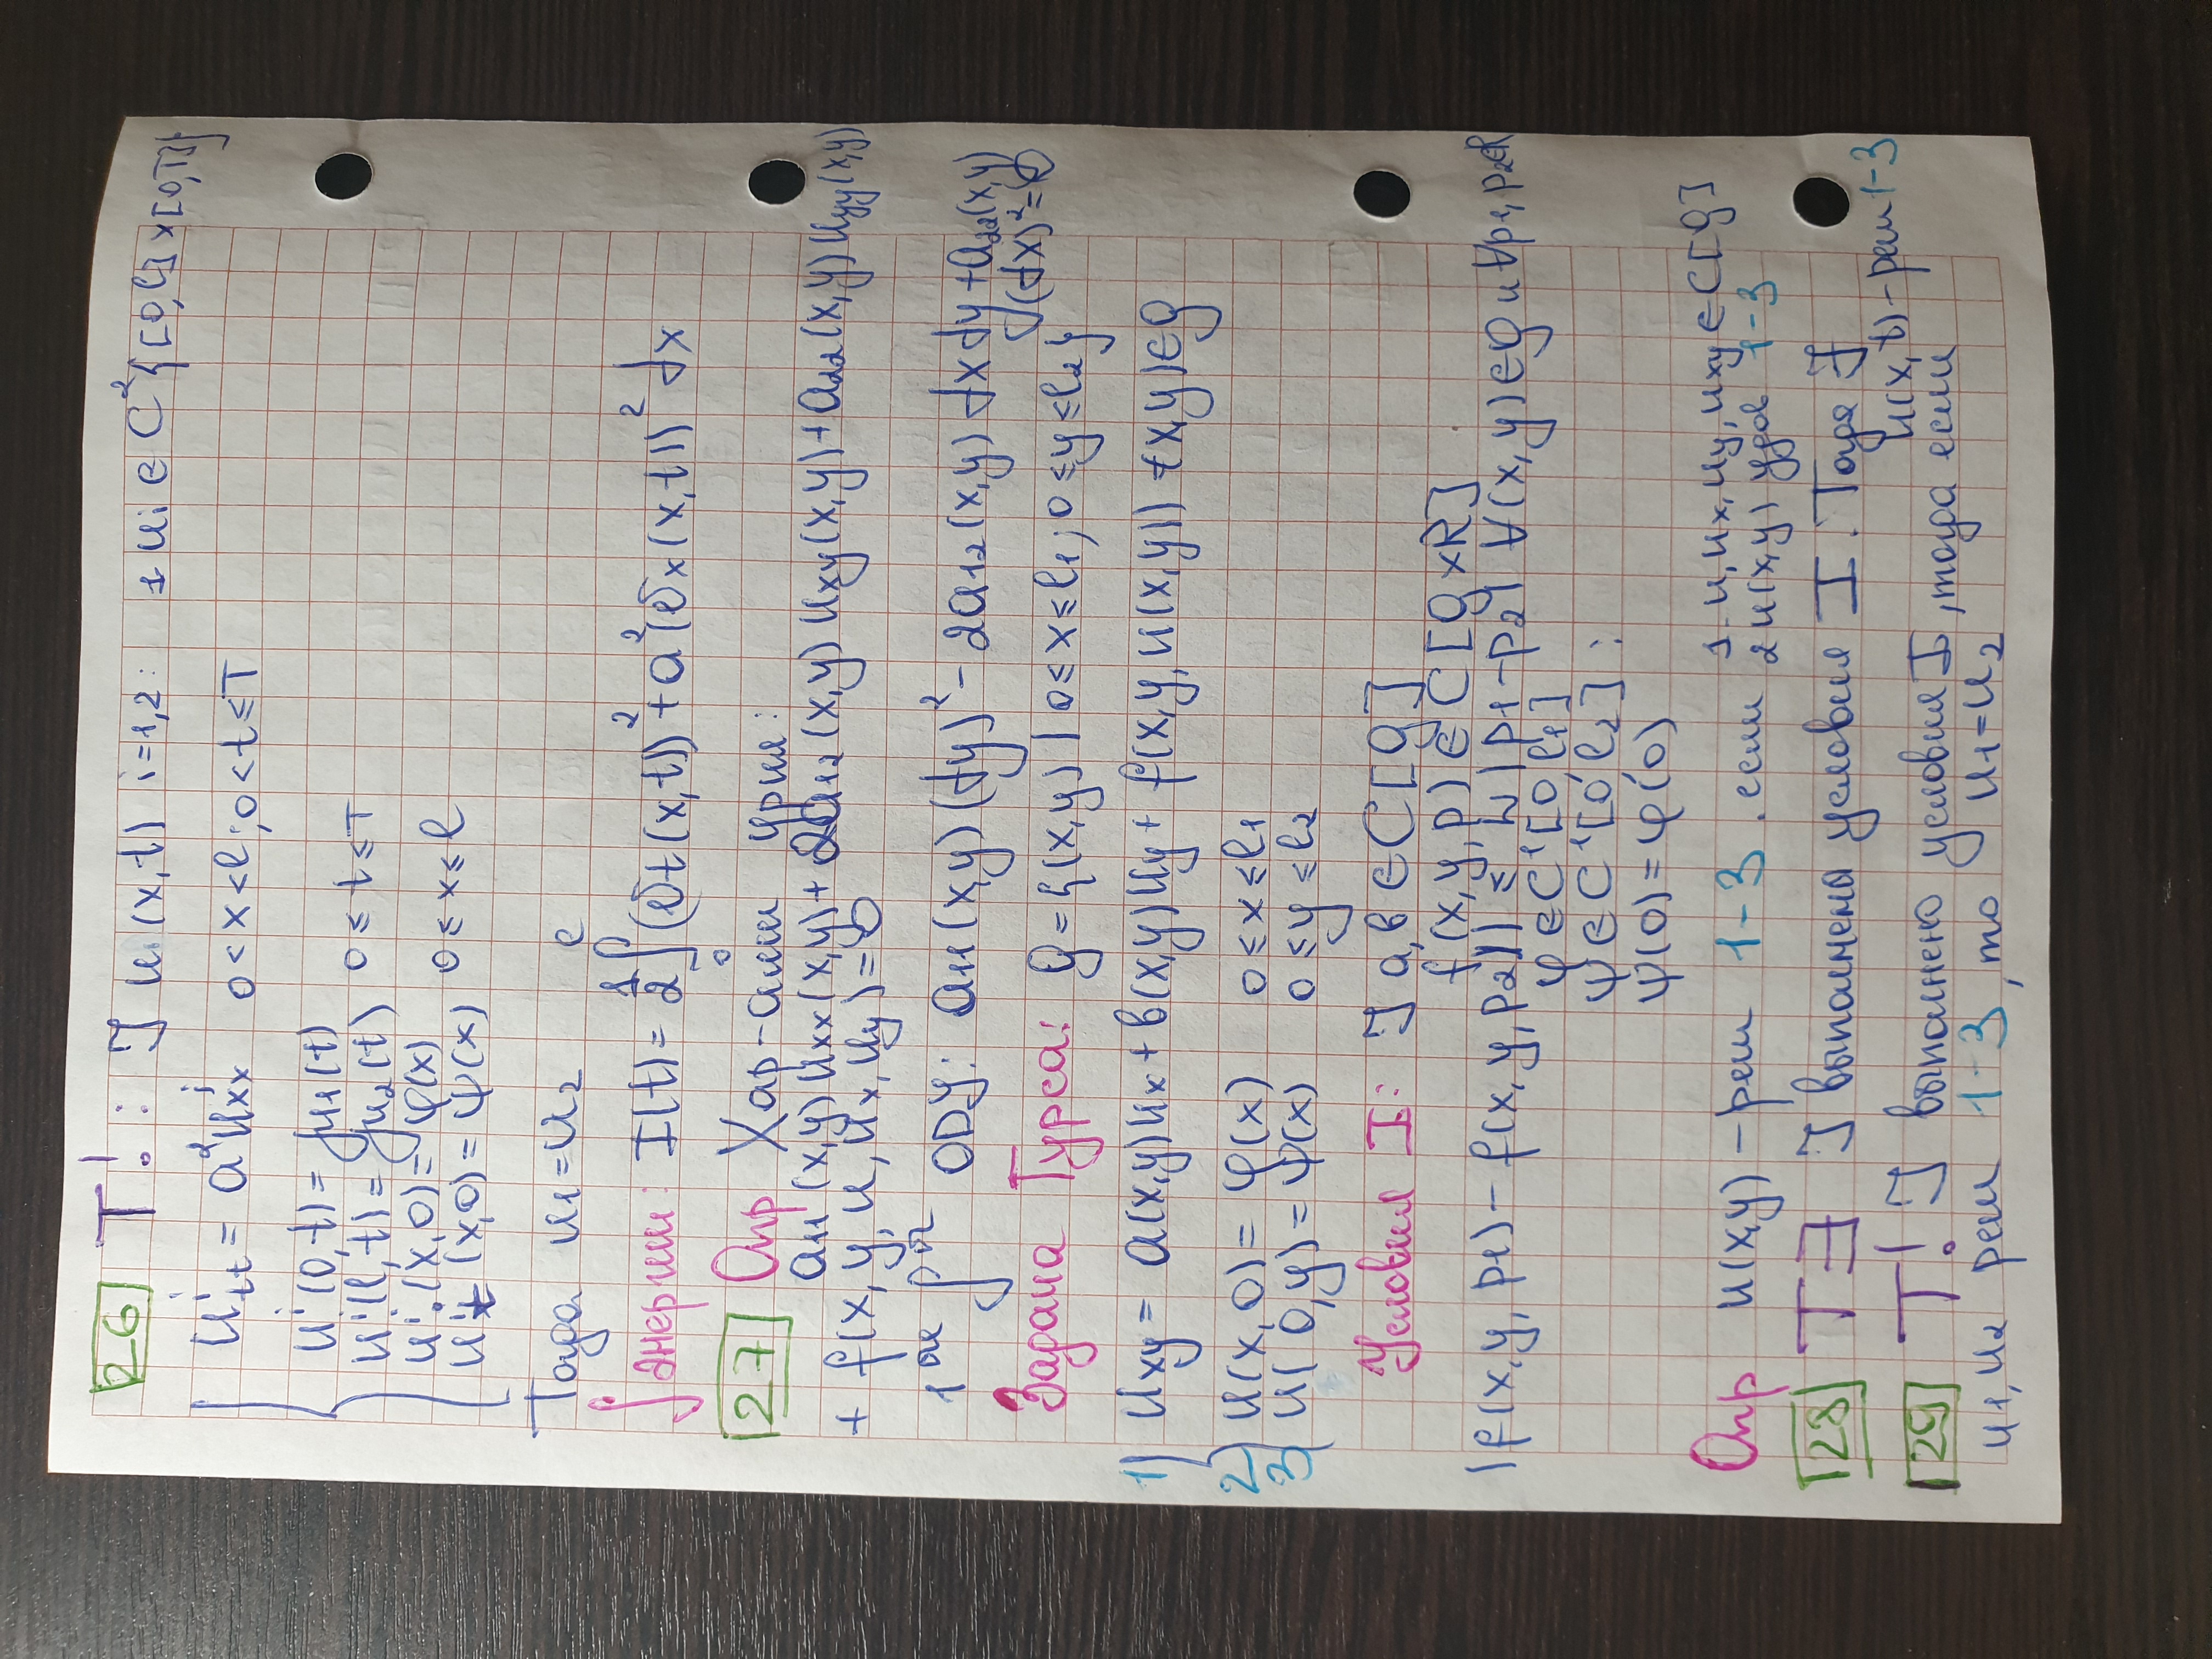 26 T!: ] uⁱ(x,t) i=1,2: 1 uⁱ ∈ C²{[0,l]×[0,T]}
uⁱₜₜ = a²uⁱₓₓ 0<x<l; 0<t≤T
uⁱ(0,t) = μ₁(t) 0≤t≤T
uⁱ(l,t) = μ₂(t)
uⁱ(x,0) = φ(x) 0≤x≤l
uⁱₜ(x,0) = ψ(x)
Тогда u₁=u₂
∫ энергии: I(t) = 1/2 ∫₀ˡ (υt(x,t))² + a²(υx(x,t))² dx
27 Опр Хар-ками ур-ия:
a₁₁(x,y)uxx(x,y) + 2a₁₂(x,y)uxy(x,y) + a₂₂(x,y)uyy(x,y)
+ f(x,y,u,ux,uy) = 0
ОДУ: a₁₁(x,y)(dy)² - 2a₁₂(x,y)dxdy + a₂₂(x,y)
(dx)² = 0
Задача Гурса: g = {(x,y) | 0≤x≤l₁; 0≤y≤l₂}
1) uxy = a(x,y)ux + b(x,y)uy + f(x,y,u(x,y)) (x,y)∈g
2) u(x,0) = φ(x) 0≤x≤l₁
3) u(0,y) = ψ(x) 0≤y≤l₂
Условия I: ] a,b ∈ C[g]
f(x,y,p) ∈ C[g×R]
|f(x,y,p₁) - f(x,y,p₂)| ≤ L|p₁-p₂| ∀(x,y)∈g и ∀p₁,p₂∈R
φ∈C'[0,l₁]
ψ∈C'[0,l₂];
ψ(0)=φ(0)
Опр u(x,y) - реш 1-3. если 1. u,ux,uy,uxy∈C[g]
2 u(x,y) удов 1-3
28 T∃ ] выполнена условия I. Тогда ∃
u(x,t) - реш 1-3
29 T! ] выполнено условия I, тогда если
u₁,u₂ реш 1-3, то u₁=u₂